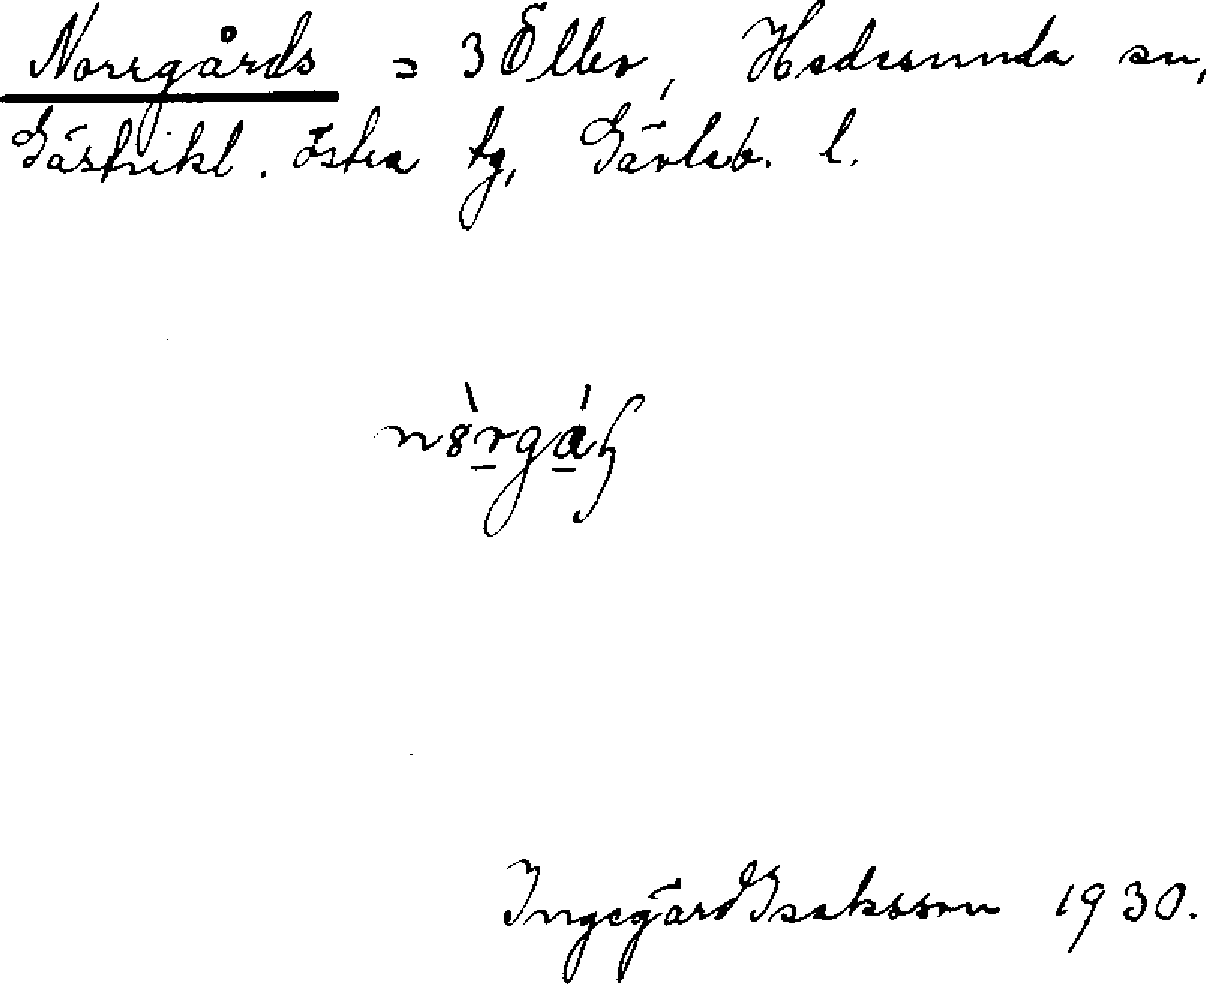 Norrgårds = 3 Öller, Hedesunda sn,
Gästrikl. östra tg, Gävleb. l.
Ingegärd Isaksson 1930.